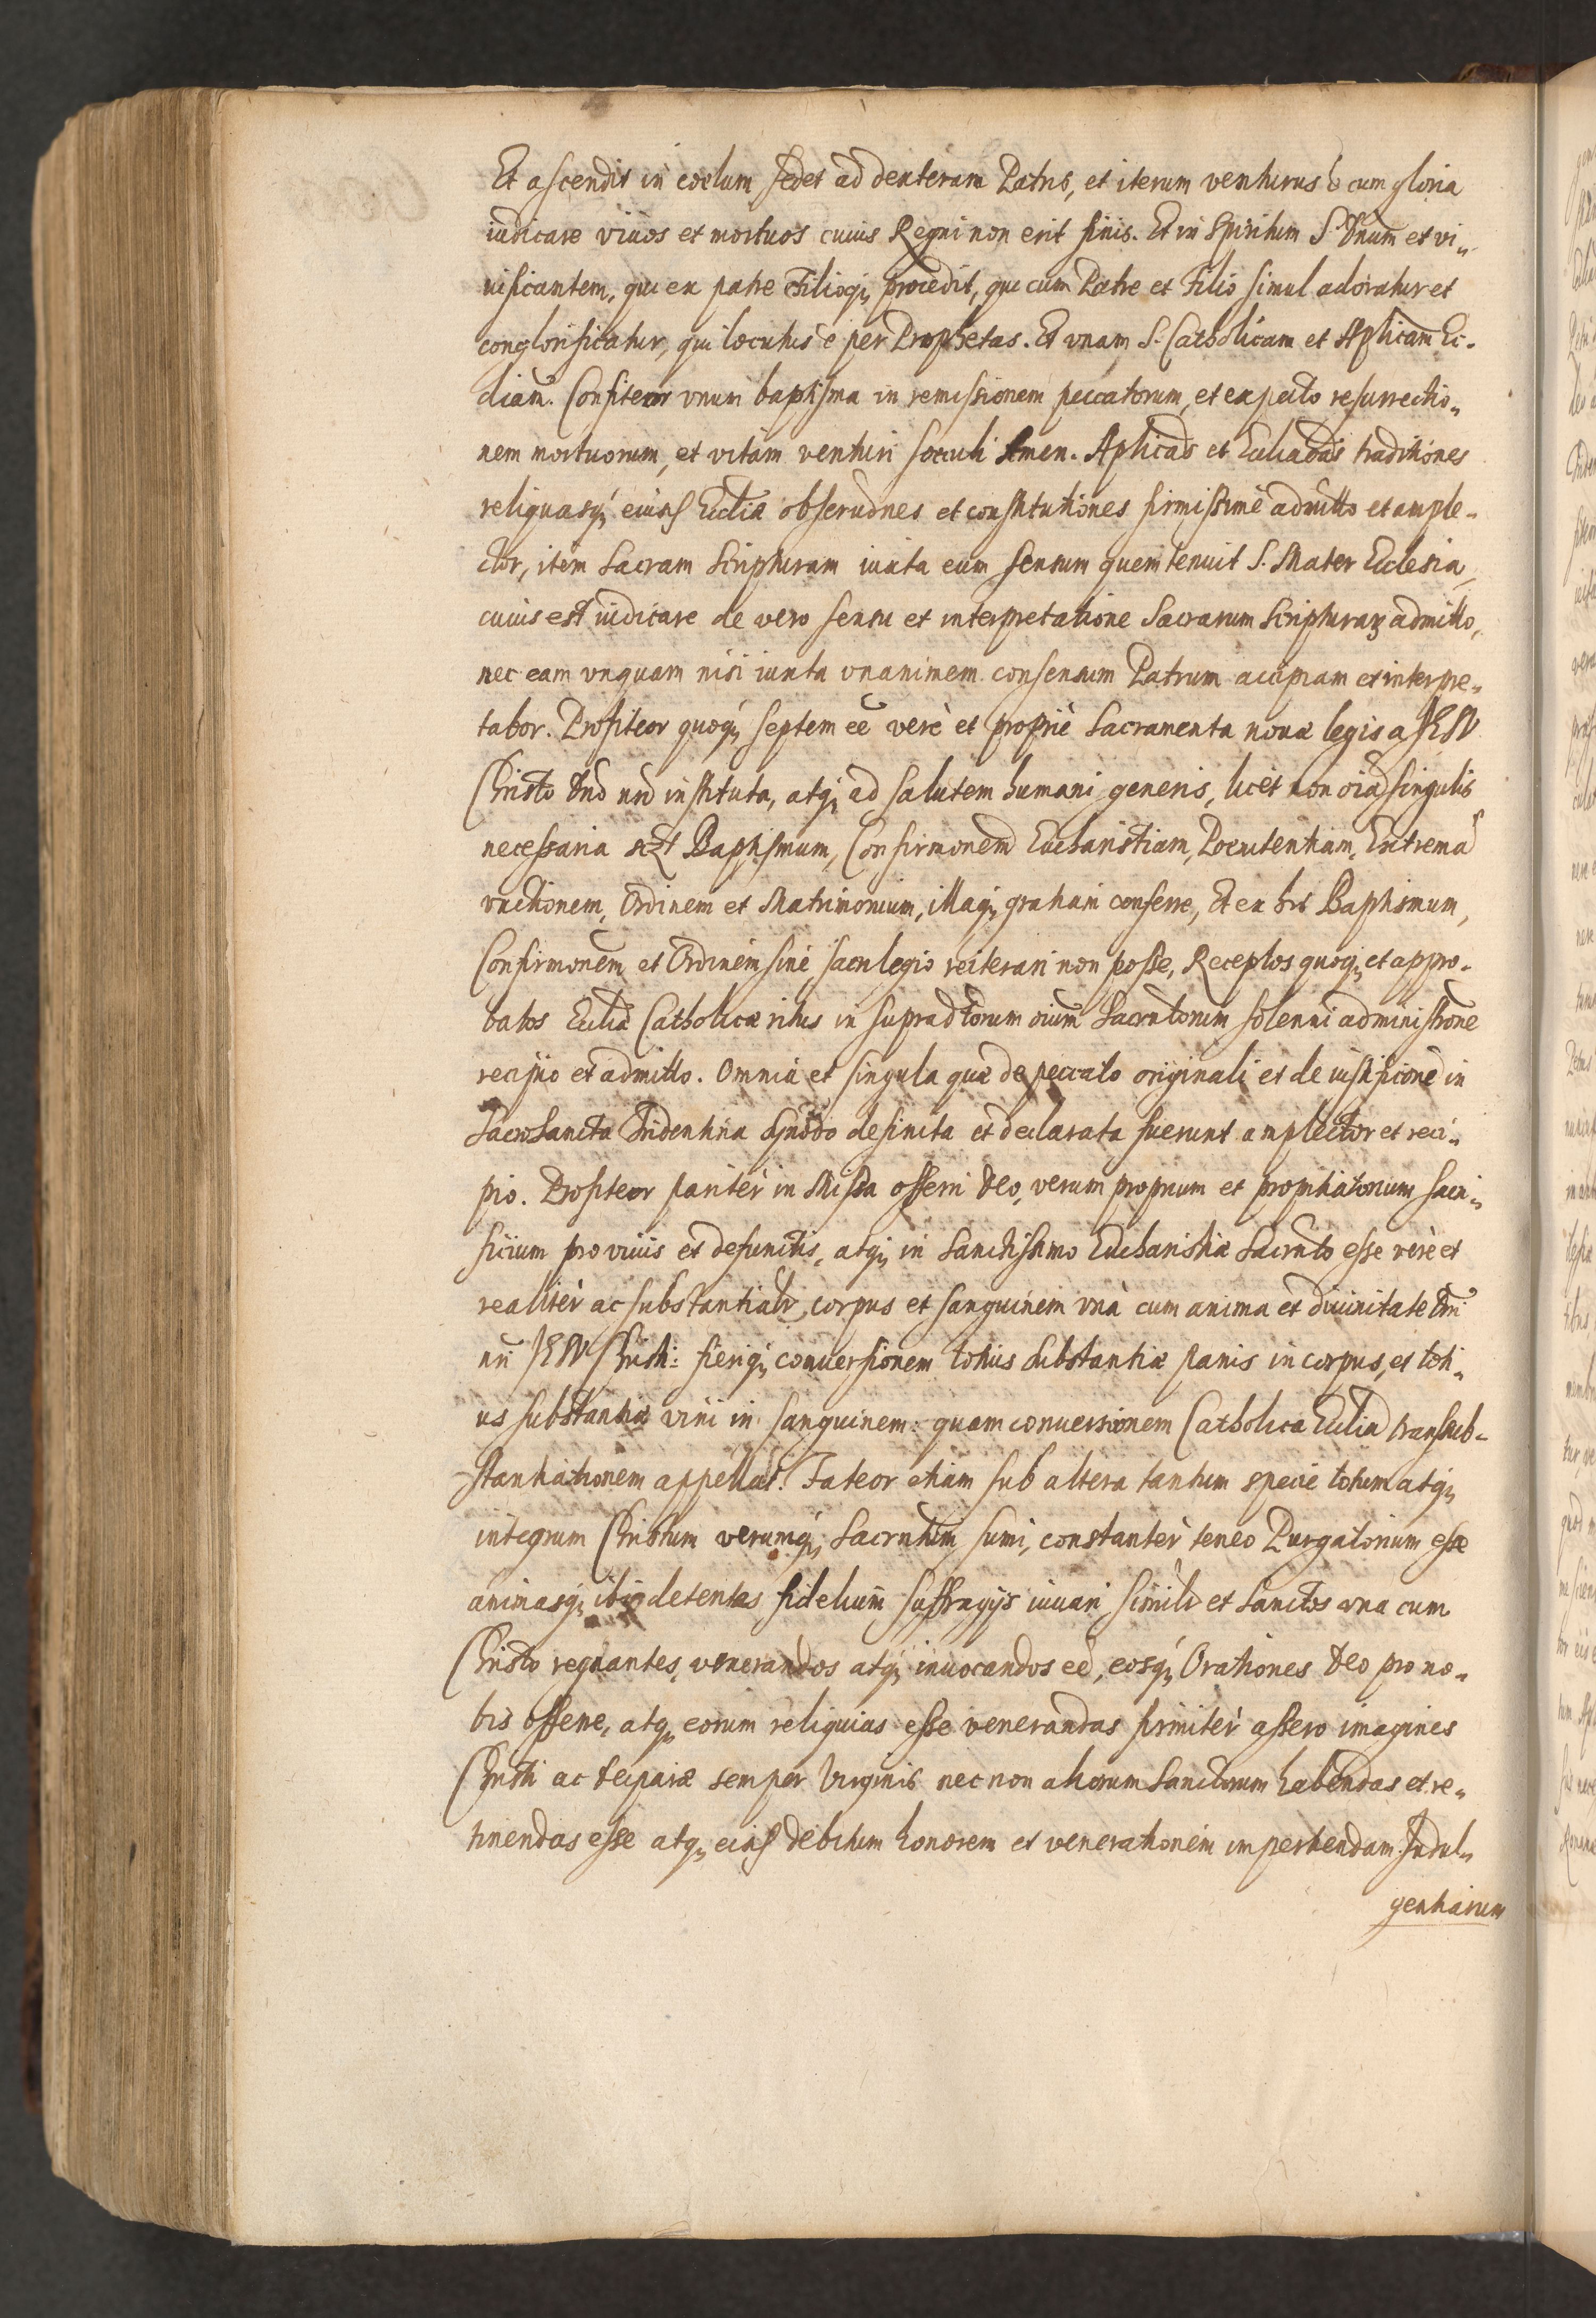 Et ascendit in coelum sedet ad dexteram Patris, et iterum venturus ẽ cum gloria
iudicare viuos et mortuos cuius Regni non erit finis. Et in Spiritum S. Dñum et vi„
uificantem, qui ex patre Filioq; procedit, qui cum Patre et Filio simul adoratur et
conglorificatur, qui locutus ẽ per Prophetas. Et vnam S. Catholicam et Aplicam̃ Ec-
cliam̃. Confiteor vnum baptisma in remissionem peccatorum, et expecto resurrectio„
nem mortuorum, et vitam venturi soeculi Amen. Aplicas̃ et Eccliasas̃ traditiones
reliquasq; eiusd Eccliæ obseruõnes et constitutiones firmissimè admitto et ample-
ctor, item Sacram Scripturam iuxta eum sensum quem tenuit S. Mater Ecclesia,
cuius est iudicare de vero sensu et interpretatione Sacrarum Scripturaꝝ admitto,
nec eam vnquam nisi iuxta vnanimem consensum Patrum accipiam et interpre„
tabor. Profiteor quoq; septem eẽ verè et propriè Sacramenta nouæ legis a JESU
Christo Dño nrõ instituta, atq; ad salutem humani generis, licèt non oĩa singulis
necessaria sczt Baptismum, Confirmonem̃ Eucharistiam, Poenitentiam, Extremã
vnctionem, Ordinem et Matrimonium, illaq; gratiam conferre, Et ex his Baptismum,
Confirmonem̃ et Ordinem sinè sacrilegio reiterari non posse, Receptos quoq; et appro-
batos Eccliæ Catholicæ ritus in supradtorum oium̃ Sacrntorum solenni administrõne
recipio et admitto. Omnia et singula quæ de peccato originali et de iustificõne in
SacroSancta Tridentina Synodo definita et declarata fuerunt amplector et reci„
pio. Profiteor paritèr in Missa offerri Deo, verum proprium et propitiatorium sacri„
ficium pro viuis et defunctis, atq; in Sanctissimo Eucharistiæ Sacrnto esse verè et
realitèr ac substantialr̃ corpus et sanguinem vnà cum anima et diuinitate Dñi
nrĩ JESU Christi: fieriq; conuersionem totius Substantiæ panis in corpus, et toti„
us substantiæ vini in sanguinem: quam conuersionem Catholica Ecclia transub-
stantiationem appellat. Fateor etiam sub altera tantum specie totum atq;
integrum Christum verumq; Sacrntum sumi, constantèr teneo Purgatorium esse
animasq; ibi detentas fidelium suffragijs iuuari, similr̃ et Sanctos vna cum
Christo regnantes, venerandos atq; inuocandos eẽ, eosq; Orationes Deo pro no„
bis offerre, atq; eorum reliquias esse venerandas firmitèr assero imagines
Christi ac Deiparæ semper Virginis nec non aliorum Sanctorum habendas et re„
tinendas esse atq; eisd debitum honorem et venerationem impertiendam. Indul„
gentiarum